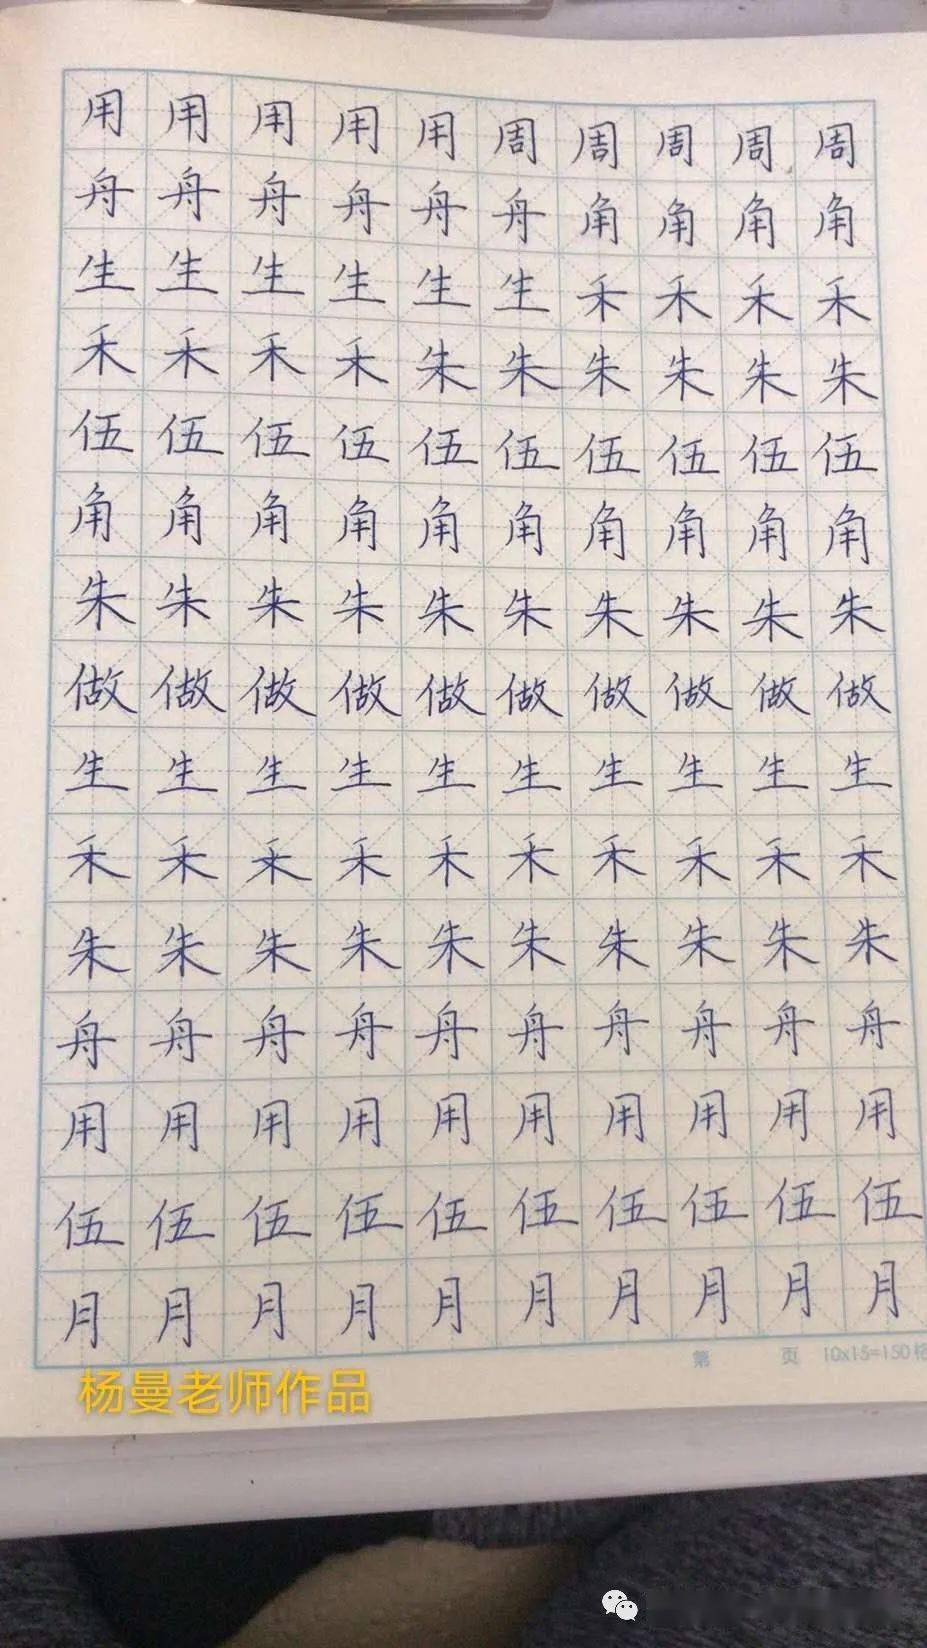 用用用用用周周周周周
舟舟舟舟舟舟角角角角
生生生生生生禾禾禾禾
禾禾禾禾朱朱朱朱朱朱
伍伍伍伍伍伍伍伍伍伍
角角角角角角角角角角
朱朱朱朱朱朱朱朱朱朱
做做做做做做做做做做
生生生生生生生生生生
禾禾禾禾禾禾禾禾禾禾
朱朱朱朱朱朱朱朱朱朱
舟舟舟舟舟舟舟舟舟舟
用用用用用用用用用用
伍伍伍伍伍伍伍伍伍伍
月月月月月月月月月月
第 页 10x15=150格
杨曼老师作品